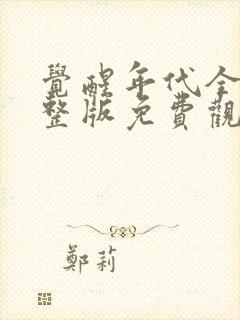 覺醒年代全
整版免費觀
鄭莉